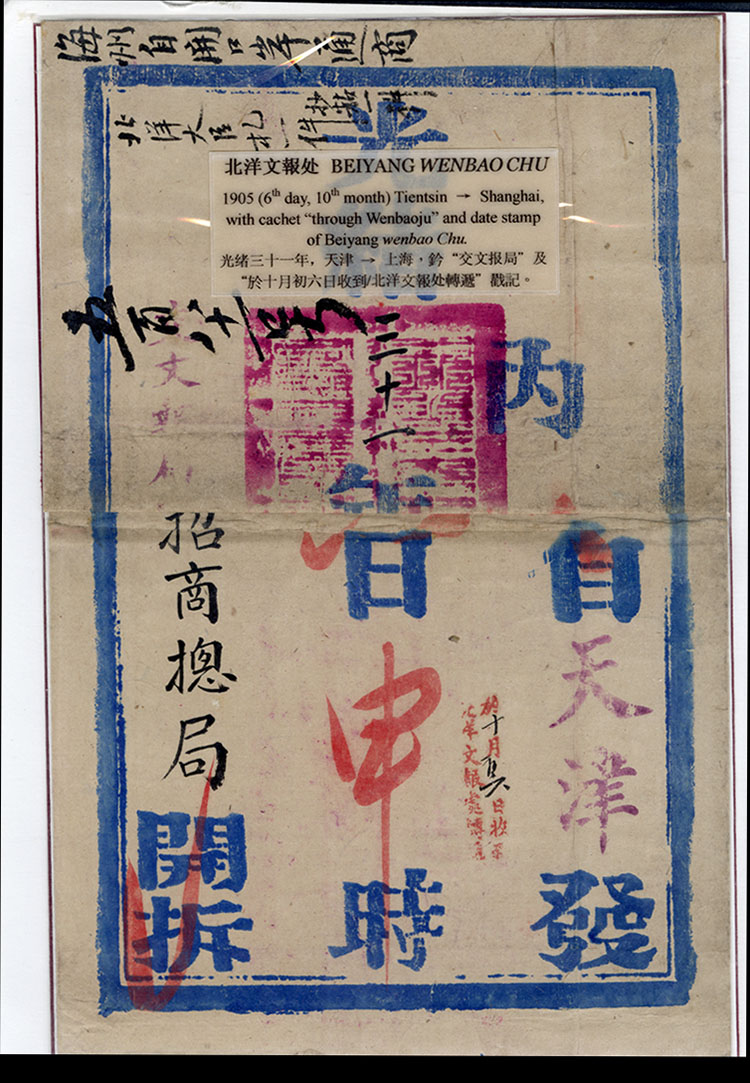 海州自開口岸通商
北洋大臣札一件抄摺一扣
北洋文報处 BEIYANG WENBAO CHU
1905 (6th day, 10th month) Tientsin → Shanghai,
with cachet “through Wenbaoju” and date stamp
of Beiyang wenbao Chu.
光绪三十一年，天津 → 上海，鈐“交文报局”及
“於十月初六日收到/北洋文報处轉遞”戳記。
内
自天津發
三十一年
日申時
於十月初六日收到
北洋文報處轉遞
五百八十一号
交文報局
招商總局
開拆